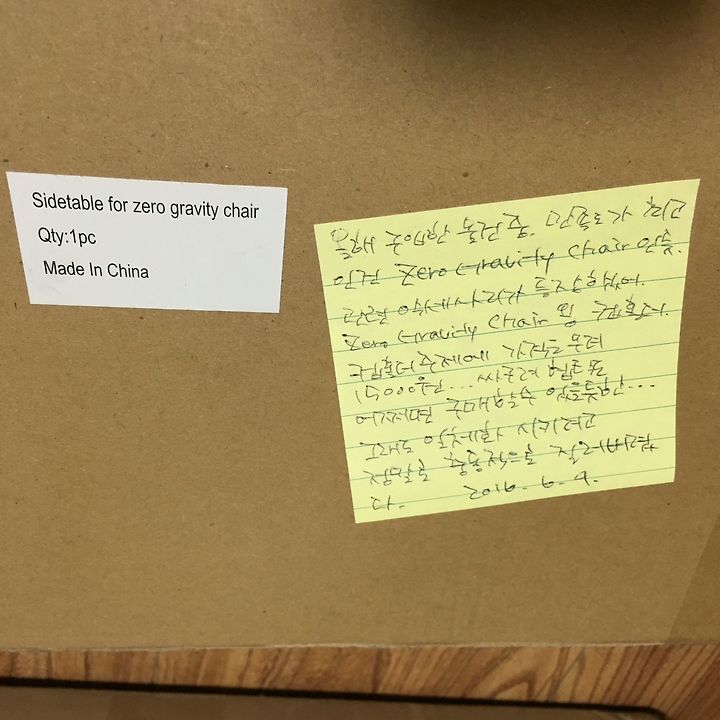 Sidetable for zero gravity chair
Qty:1pc
Made In China
올해 구입한 물건 중. 만족도가 최고
인건 Zero Gravity Chair 인듯.
관련 악세사리가 등장하였어.
Zero Gravity Chair 용 컵홀더.
컵홀더 주제에 가격은 무려
15000원... 싸구려 텐트도
어쩌면 구매할수 있을듯한...
그래도 일체화 시키려고
정말로 충동적으로 질러버렸
다. 2016. 6. 9.